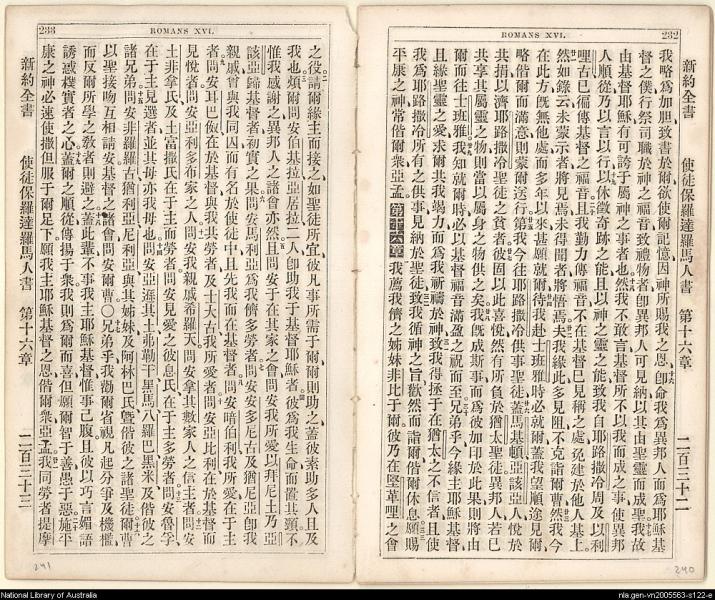 232
ROMANS XVI.
新約全書 使徒保羅達羅馬人書 第十六章 二百三十二
我略爲加胆致書於爾欲使爾記憶因神所賜我之恩卽命我爲異邦人而爲耶穌基
督之僕行祭司職於神之福音致禮物者卽異邦人可見納以其由聖靈而成聖我故
由基督耶穌有可誇于屬神之事者也然我不敢言基督所不以我而成之事使異邦
人順從乃以言以行以休徵奇跡之能且以神之靈之能致我自耶路撒冷周及以利
哩古已徧傳基督之福音且我勤力傳福音不在基督已見稱之處免建於他人基上
然如錄云未蒙示者將見焉未得聞者將悟焉夫我緣此多見阻不克詣爾曹然我今
在此方旣無他處而多年以來甚願就爾待我赴士班雅時必就爾蓋我望順途見爾
略偕爾而滿意則蒙爾送行第我今往耶路撒冷供事聖徒蓋馬基頓亞該亞人悅於
共捐以濟耶路撒冷聖徒之貧者彼固以此喜悅然有所負於猶太聖徒異邦人若已
共享其屬靈之物則當以屬身之物供之矣我旣成斯事而爲彼如印於此果則將由
爾而往士班雅我知就爾時必以基督福音滿盈之祝而至兄弟乎今緣主耶穌基督
且緣聖靈之愛求爾共我竭力而爲我祈禱於神致我得拯于在猶太之不信者且使
我爲耶路撒冷所有之供事見納於聖徒致我循神之旨歡然而詣爾偕爾休息願賜
平康之神常偕爾衆亞孟 第十六章 我薦我儕之姊妹非比于爾彼乃在堅革哩之會
240
233
ROMANS XVI.
之役請爾緣主而接之如聖徒所宜彼凡事所需于爾爾則助之蓋彼素助多人且及
我也煩爾問安伯基拉亞居拉二人卽助我于基督耶穌者彼爲我生命而置其頸不
惟我感謝之異邦人之諸會亦然且問安于在其家之會問安我所愛以拜尼土乃亞
該亞歸基督者初實之果問安馬利亞爲我儕多勞者問安安多尼古及猶尼亞卽我
親戚曾與我同囚而有名於使徒中且先我而在基督者問安暗伯利我所愛在于主
者問安耳巴飽在於基督與我共勞者及士大古我所愛者問安亞比利在於基督而
見悅者問安亞利多布家之人問安我親戚希羅天問安拿其數家人之信主者問安
土非拿氏及土富撒氏在于主而勞者問安見愛之彼息氏在于主多勞者問安魯孚
在于主見選者並其母亦我母也問安亞遜其土弗勒干黑馬八羅巴黑米及偕彼之
諸兄弟問安非羅羅古猶利亞尼利亞與其姊妹及阿林巴氏曁偕彼之諸聖徒爾曹
以聖接吻互相請安基督之諸會問安爾曹〇兄弟乎我勸爾省視凡起分爭及機檻
而反爾所學之敎者則避之蓋此輩不事我主耶穌基督惟事己腹且彼以巧言媚語
誘惑樸實者之心蓋爾之順從傳揚于衆我則爲爾而喜但願爾智于善愚于惡施平
康之神必速使撒但服于爾足下願我主耶穌基督之恩偕爾衆亞孟我同勞者提摩
新約全書 使徒保羅達羅馬人書 第十六章 二百三十三
241
National Library of Australia
nla.gen-vn2005563-s122-e